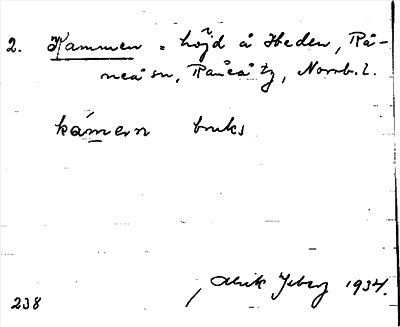 2. Kammen = höjd å Heden, Rå-
neå sn, Råneå tg, Norrb. l.
kámern bruks
1934.
238